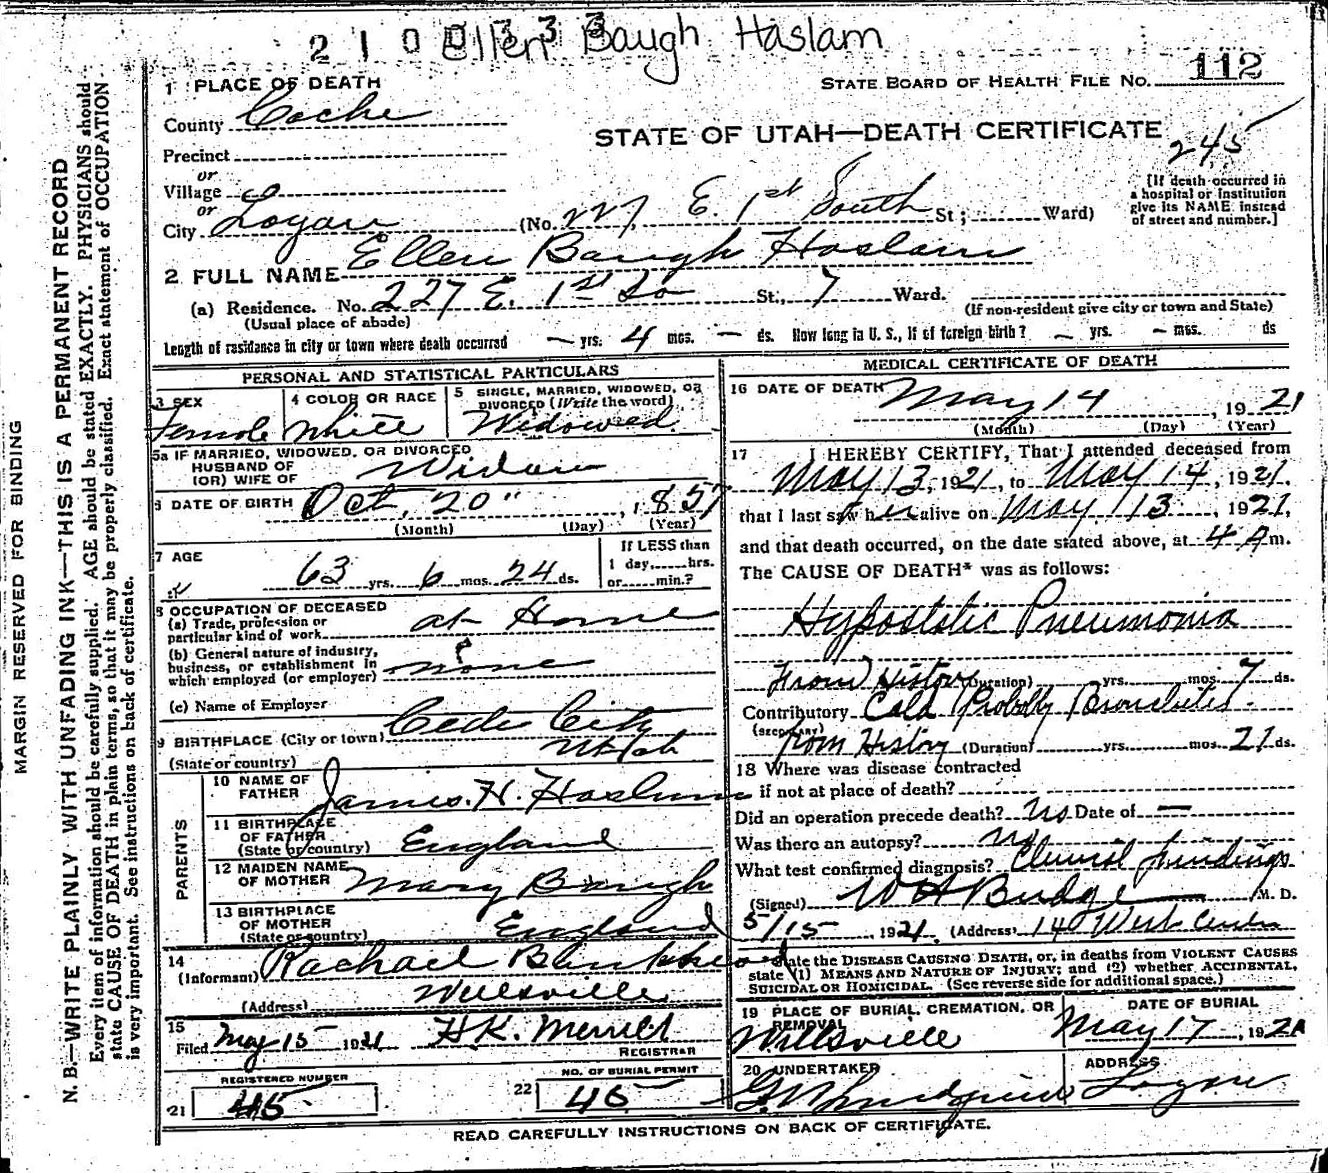 2 1 0 0 3 3 3 Ellen Baugh Haslam
1 PLACE OF DEATH
STATE BOARD OF HEALTH FILE NO. 112
County Cache
STATE OF UTAH—DEATH CERTIFICATE
245
Precinct
or
Village
or
City Logan (No. 227 E. 1st South St; Ward)
[If death occurred in
a hospital or institution
give its NAME instead
of street and number.]
2 FULL NAME Ellen Baugh Haslam
(a) Residence. No. 227 E. 1st So St., 7 Ward.
(Usual place of abode)
(If non-resident give city or town and State)
Length of residence in city or town where death occurred — yrs. 4 mos. — ds. How long in U. S., if of foreign birth? — yrs. — mos. ds
PERSONAL AND STATISTICAL PARTICULARS
3 SEX
Female
4 COLOR OR RACE
White
5 SINGLE, MARRIED, WIDOWED, OR
DIVORCED (Write the word)
Widowed
5a IF MARRIED, WIDOWED, OR DIVORCED
HUSBAND OF
(OR) WIFE OF Widow
6 DATE OF BIRTH Oct. 20" , 1857
(Month) (Day) (Year)
7 AGE
63 yrs. 6 mos. 24 ds.
If LESS than
1 day,......hrs.
or......min.?
8 OCCUPATION OF DECEASED
(a) Trade, profession or
particular kind of work at Home
(b) General nature of industry,
business, or establishment in
which employed (or employer) none
(c) Name of Employer
9 BIRTHPLACE (City or town) Cedar City
(State or country) Utah
PARENTS
10 NAME OF
FATHER James. H. Haslam
11 BIRTHPLACE
OF FATHER
(State or country) England
12 MAIDEN NAME
OF MOTHER Mary Baugh
13 BIRTHPLACE
OF MOTHER
(State or country) England
14
(Informant) Rachael
(Address) Wellsville
15
Filed May 15 1921 H.K. Merrill
REGISTRAR
REGISTERED NUMBER
21 45
NO. OF BURIAL PERMIT
22 45
MEDICAL CERTIFICATE OF DEATH
16 DATE OF DEATH May 14 , 1921
(Month) (Day) (Year)
17 I HEREBY CERTIFY, That I attended deceased from
May 13, 1921, to May 14, 1921.
that I last saw her alive on May 13 , 1921,
and that death occurred, on the date stated above, at 4 A m.
The CAUSE OF DEATH* was as follows:
Hypostatic Pneumonia
From History (Duration) yrs. mos. 7 ds.
Contributory Cold Probably Bronchitis.
(SECONDARY)
from History (Duration) yrs. mos. 21 ds.
18 Where was disease contracted
if not at place of death?
Did an operation precede death? No Date of —
Was there an autopsy? no
What test confirmed diagnosis? Clinical findings
(Signed) W H Budge M. D.
5/15 1921, (Address) 140 West Center
*State the DISEASE CAUSING DEATH, or, in deaths from VIOLENT CAUSES
state (1) MEANS AND NATURE OF INJURY; and (2) whether ACCIDENTAL,
SUICIDAL OR HOMICIDAL. (See reverse side for additional space.)
19 PLACE OF BURIAL, CREMATION, OR
REMOVAL
Wellsville
DATE OF BURIAL
May 17 , 1921
20 UNDERTAKER
ADDRESS
Logan
READ CAREFULLY INSTRUCTIONS ON BACK OF CERTIFICATE.
MARGIN RESERVED FOR BINDING
N. B.—WRITE PLAINLY WITH UNFADING INK—THIS IS A PERMANENT RECORD
Every item of information should be carefully supplied. AGE should be stated EXACTLY. PHYSICIANS should
state CAUSE OF DEATH in plain terms, so that it may be properly classified. Exact statement of OCCUPATION
is very important. See instructions on back of certificate.